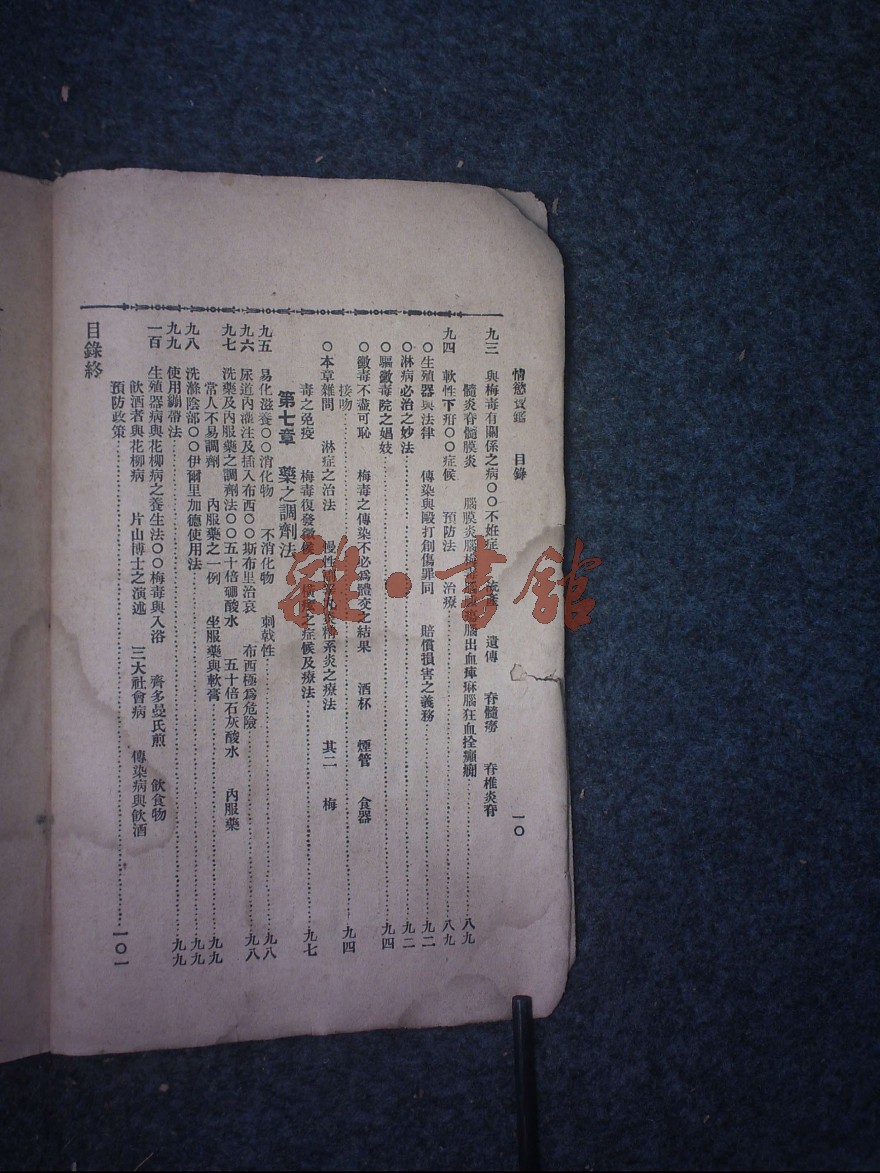 情慾寶鑑　目錄　一〇
九三　與梅毒有關係之病〇〇不姙症　流產　遺傳　脊髓癆　脊椎炎脊
髓炎脊髓膜炎　腦膜炎腦梅毒　腦出血痳痺腦狂血栓癲癇……八九
九四　軟性下疳〇〇症候　預防法　治療……八九
〇生殖器與法律　傳染與毆打創傷罪同　賠償損害之義務……九二
〇淋病必治之妙法……九二
〇驅黴毒院之娼妓……九四
〇黴毒不盡可恥　梅毒之傳染不必爲體交之結果　酒杯　煙管　食器
接吻……九四
〇本章雜問　淋症之治法　慢性副睪丸炎精系炎之療法　其二　梅
毒之免疫　梅毒復發徵候　橫痃之症候及療法……九七
第七章　藥之調劑法
九五　易化滋養〇〇消化物　不消化物　刺戟性……九八
九六　尿道內灌注及插入布西〇〇斯布里治哀　布西極爲危險……九八
九七　洗藥及內服藥之調劑法〇〇五十倍硼酸水　五十倍石灰酸水　內服藥
常人不易調劑　內服藥之一例　坐服藥與軟膏……九九
九八　洗滌陰部〇〇伊爾里加德使用法……九九
九九　使用繃帶法……九九
一百　生殖器病與花柳病之養生法〇〇梅毒與入浴　齊多曼氏煎　飲食物
飲酒者與花柳病　片山博士之演述　三大社會病　傳染病與飲酒
預防政策……一〇一
目錄終
雜·書館